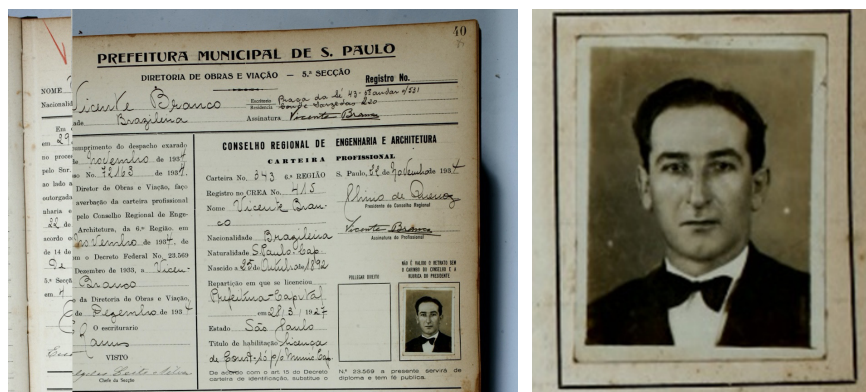 40
PREFEITURA MUNICIPAL DE S. PAULO
DIRETORIA DE OBRAS E VIAÇÃO — 5.ª SECÇÃO
Registro No.
NOME
Vicente Branco
Escritorio Praça da Sé 43-5º andar s/531
Residencia Conde Sarzedas 230
Nacionalid
ade Brazileira
Assinatura Vicente Branco
Em
em 29
no proces
pelo Snr.
ao lado a
outorgada
aharia e
22 de
acordo c
de 14 de
De
5.ª Secçã
em 4
umprimento do despacho exarado
de Novembro de 1934
so No. 72163 de 1934.
Diretor de Obras e Viação, faço
averbação da carteira profissional
pelo Conselho Regional de Enge-
Architetura, da 6.ª Região. em
Novembro de 1934, de
om o Decreto Federal No. 23.569
Dezembro de 1933, a Vicen-
Branco
da Diretoria de Obras e Viação,
de Dezembro de 193
O escriturario
VISTO
Chefe da Secção
CONSELHO REGIONAL DE ENGENHARIA E ARCHITETURA
CARTEIRA PROFISSIONAL
Carteira No. 343 6.ª REGIÃO
S. Paulo, 22 de Novembro 1934
Registro no CREA No. 415
Presidente do Conselho Regional
Nome Vicente Bran-
co
Vicente Branco
Assinatura do Profissional
Nacionalidade Brazileira
Naturalidade S. Paulo-Cap.
Nascido a 25 de Outubro/1892
Repartição em que se licenciou
Prefeitura-Capital
em 28/3/1927
Estado São Paulo
Titulo de habilitação licença
de Const.
POLLEGAR DIREITO
NÃO É VALIDO O RETRATO SEM
O CARIMBO DO CONSELHO E A
RUBRICA DO PRESIDENTE
De acordo com o art 15 do Decreto N.º 23.569 a presente servirá de
carteira de identificação, substitue o diploma e tem fé publica.